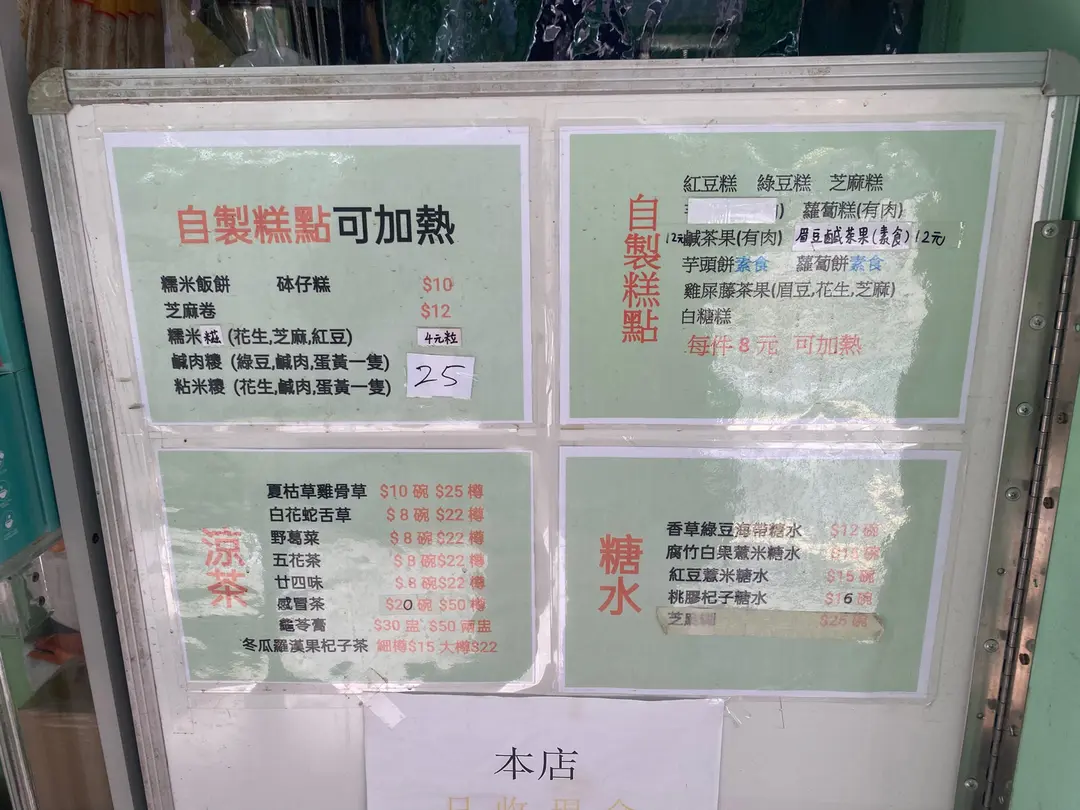 自製糕點可加熱
糯米飯餅 砵仔糕 $10
芝麻卷 $12
糯米糍 (花生,芝麻,紅豆) 4元粒
鹹肉糉 (綠豆,鹹肉,蛋黃一隻)
粘米糉 (花生,鹹肉,蛋黃一隻)
25
自製糕點
紅豆糕 綠豆糕 芝麻糕
蘿蔔糕(有肉)
12元鹹茶果(有肉) 眉豆鹹茶果(素食)12元
芋頭餅素食 蘿蔔餅素食
雞屎藤茶果(眉豆,花生,芝麻)
白糖糕
每件 8 元 可加熱
涼茶
夏枯草雞骨草 $10 碗 $25 樽
白花蛇舌草 $ 8 碗 $22 樽
野葛菜 $ 8 碗 $22 樽
五花茶 $ 8 碗 $22 樽
廿四味 $ 8 碗 $22 樽
感冒茶 $20 碗 $50 樽
龜苓膏 $30 盅 $50 兩盅
冬瓜羅漢果杞子茶 細樽$15 大樽$22
糖水
香草綠豆海帶糖水 $12 碗
腐竹白果薏米糖水 碗
紅豆薏米糖水 $15 碗
桃膠杞子糖水 $16 碗
芝麻 $25 碗
本店